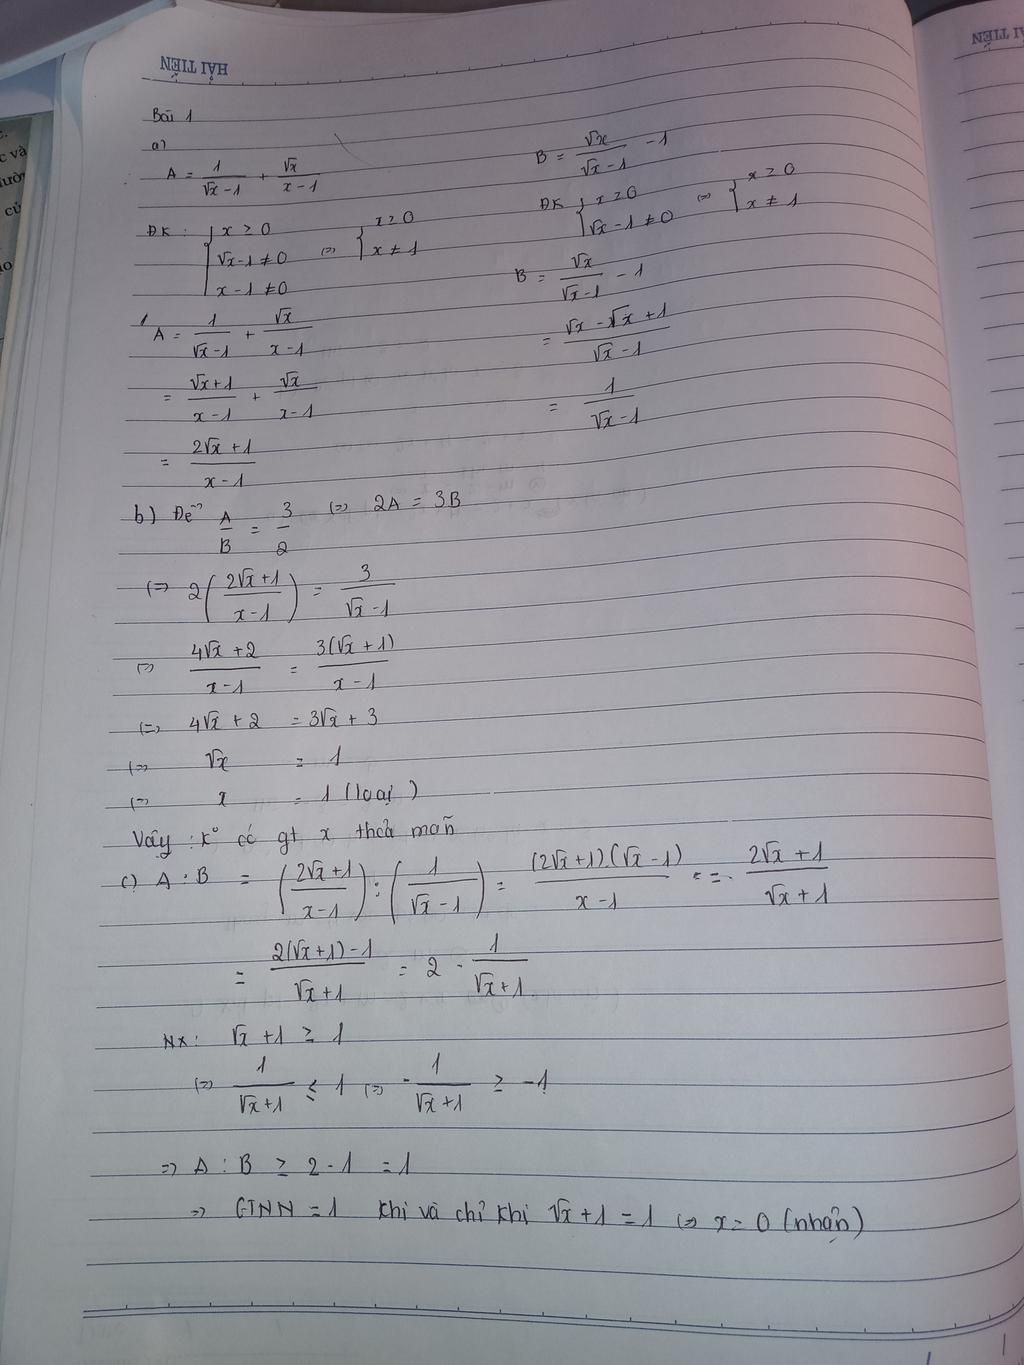 HẢI TIẾN
Bài 1
a)
A = 1/(√x - 1) + √x/(x - 1)
ĐK : { x ≥ 0
√x - 1 ≠ 0
x - 1 ≠ 0 (=) { x ≥ 0
x ≠ 1
A = 1/(√x - 1) + √x/(x - 1)
= (√x + 1)/(x - 1) + √x/(x - 1)
= (2√x + 1)/(x - 1)
B = √x/(√x - 1) - 1
ĐK { x ≥ 0
√x - 1 ≠ 0 (=) { x ≥ 0
x ≠ 1
B = √x/(√x - 1) - 1
= (√x - √x + 1)/(√x - 1)
= 1/(√x - 1)
b) Để A/B = 3/2 (=) 2A = 3B
(=) 2((2√x + 1)/(x - 1)) = 3/(√x - 1)
(=) (4√x + 2)/(x - 1) = 3(√x + 1)/(x - 1)
(=) 4√x + 2 = 3√x + 3
(=) √x = 1
(=) x = 1 (loại)
Vậy : k° có gt x thoả mãn
c) A : B = ((2√x + 1)/(x - 1)) : (1/(√x - 1)) = (2√x + 1).(√x - 1)/(x - 1) = (2√x + 1)/(√x + 1)
= (2(√x + 1) - 1)/(√x + 1) = 2 - 1/(√x + 1)
NX : √x + 1 ≥ 1
(=) 1/(√x + 1) ≤ 1 (=) - 1/(√x + 1) ≥ -1
=> A : B ≥ 2 - 1 = 1
=> GTNN = 1 khi và chỉ khi √x + 1 = 1 (=) x = 0 (nhận)